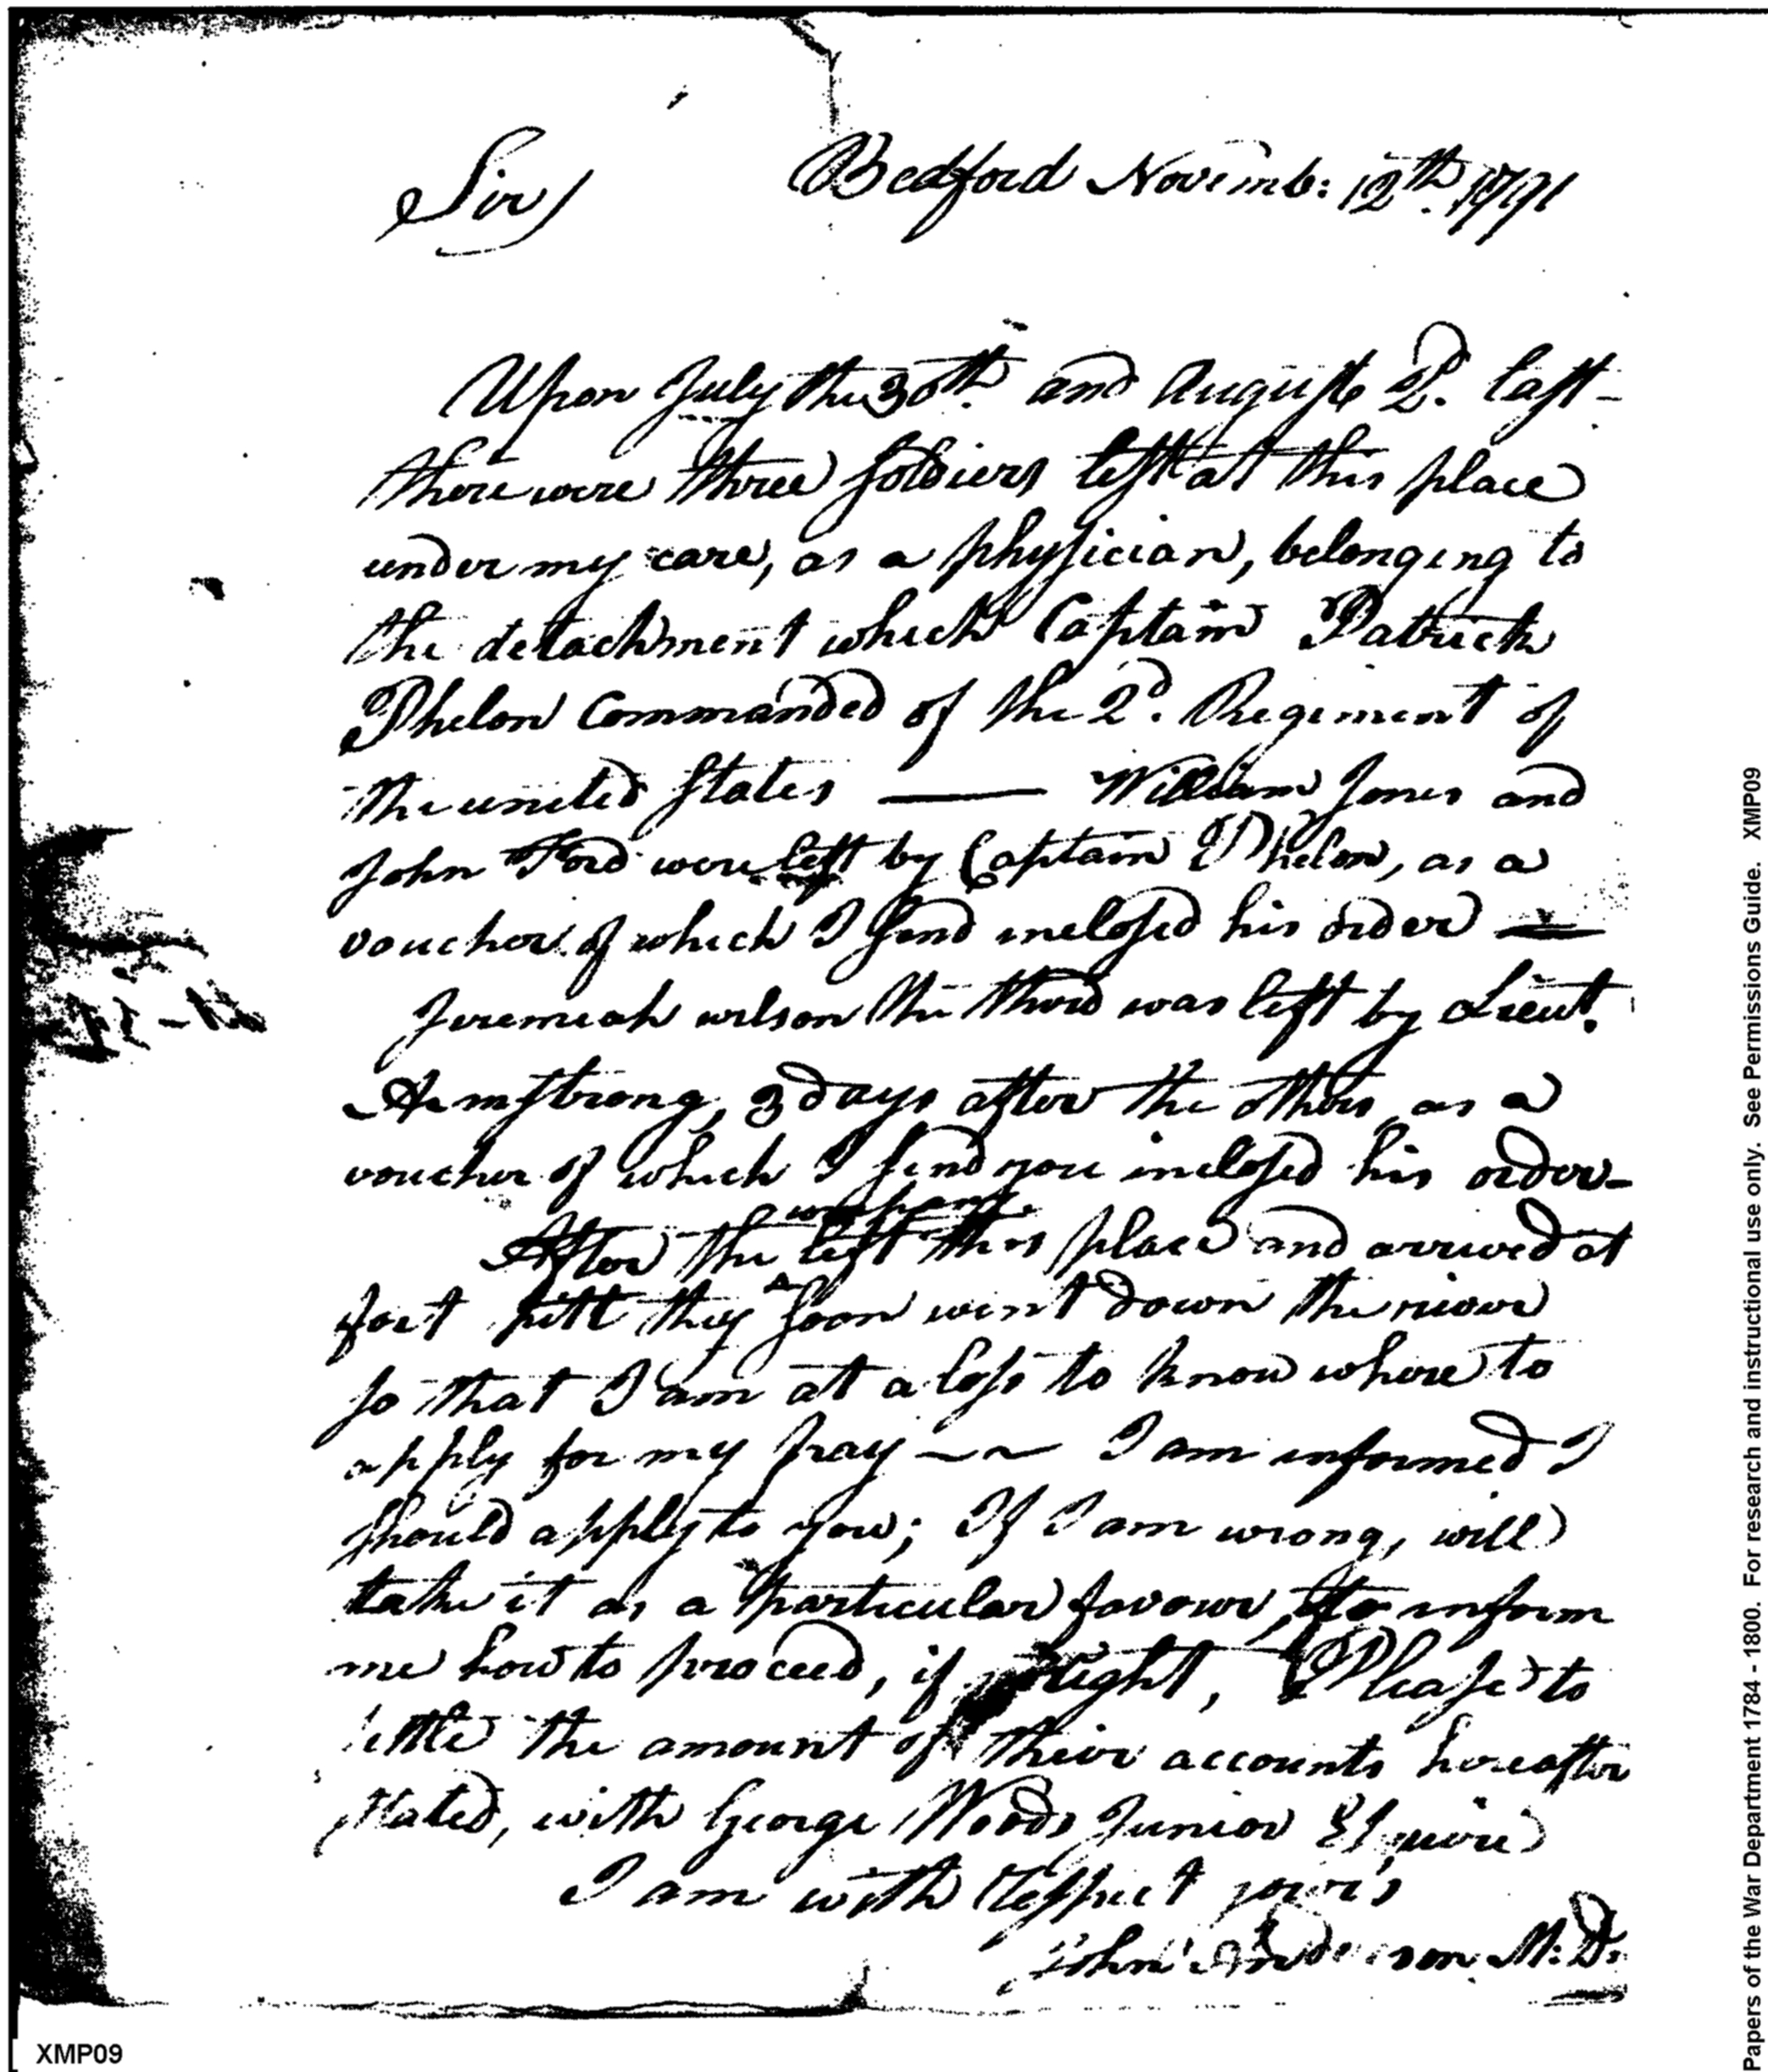 Sir/
Bedford Novemb: 12th. 1791
Upon July the 30th. and August 2d. last-
there were three soldiers left at this place
under my care, as a physician, belonging to
the detachment which Captain Patrick
Phelon Commanded of the 2d. Regiment of
the united states —— William Jones and
John Ford were left by Captain Phelon, as a
voucher of which I send inclosed his order —
Jeremiah wilson the third was left by Lieut.
Armstrong, 3 days after the others, as a
voucher of which I send you inclosed his order-
company.
After the left this place and arrived at
fort pitt they soon went down the river
so that I am at a loss to know where to
apply for my pay —— I am informed I
should apply to you; If I am wrong, will
take it as a particular favour, to inform
me how to proceed, if right, Please to
settle the amount of their accounts hereafter
stated, with George Woods Junior Esquire
I am with respect your's
John Anderson M:D.
XMP09
Papers of the War Department 1784 - 1800. For research and instructional use only. See Permissions Guide. XMP09